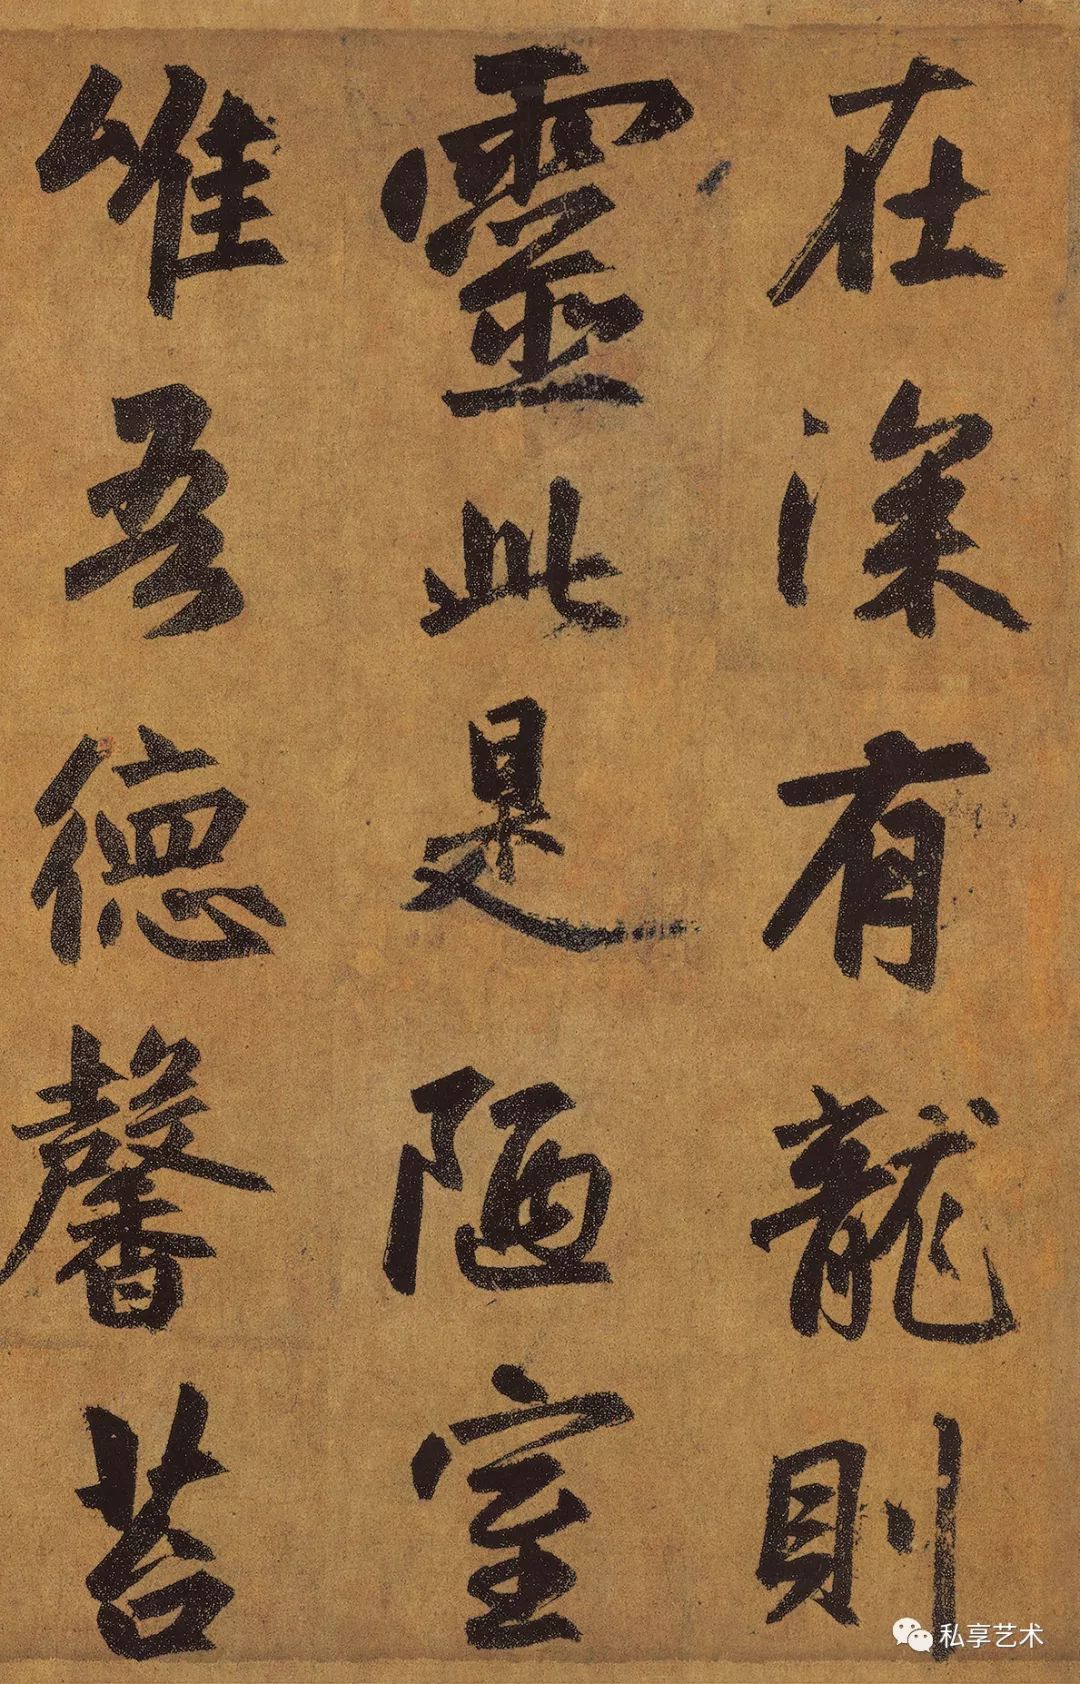 在深有龍則
靈此是陋室
唯吾德馨苔
私享艺术